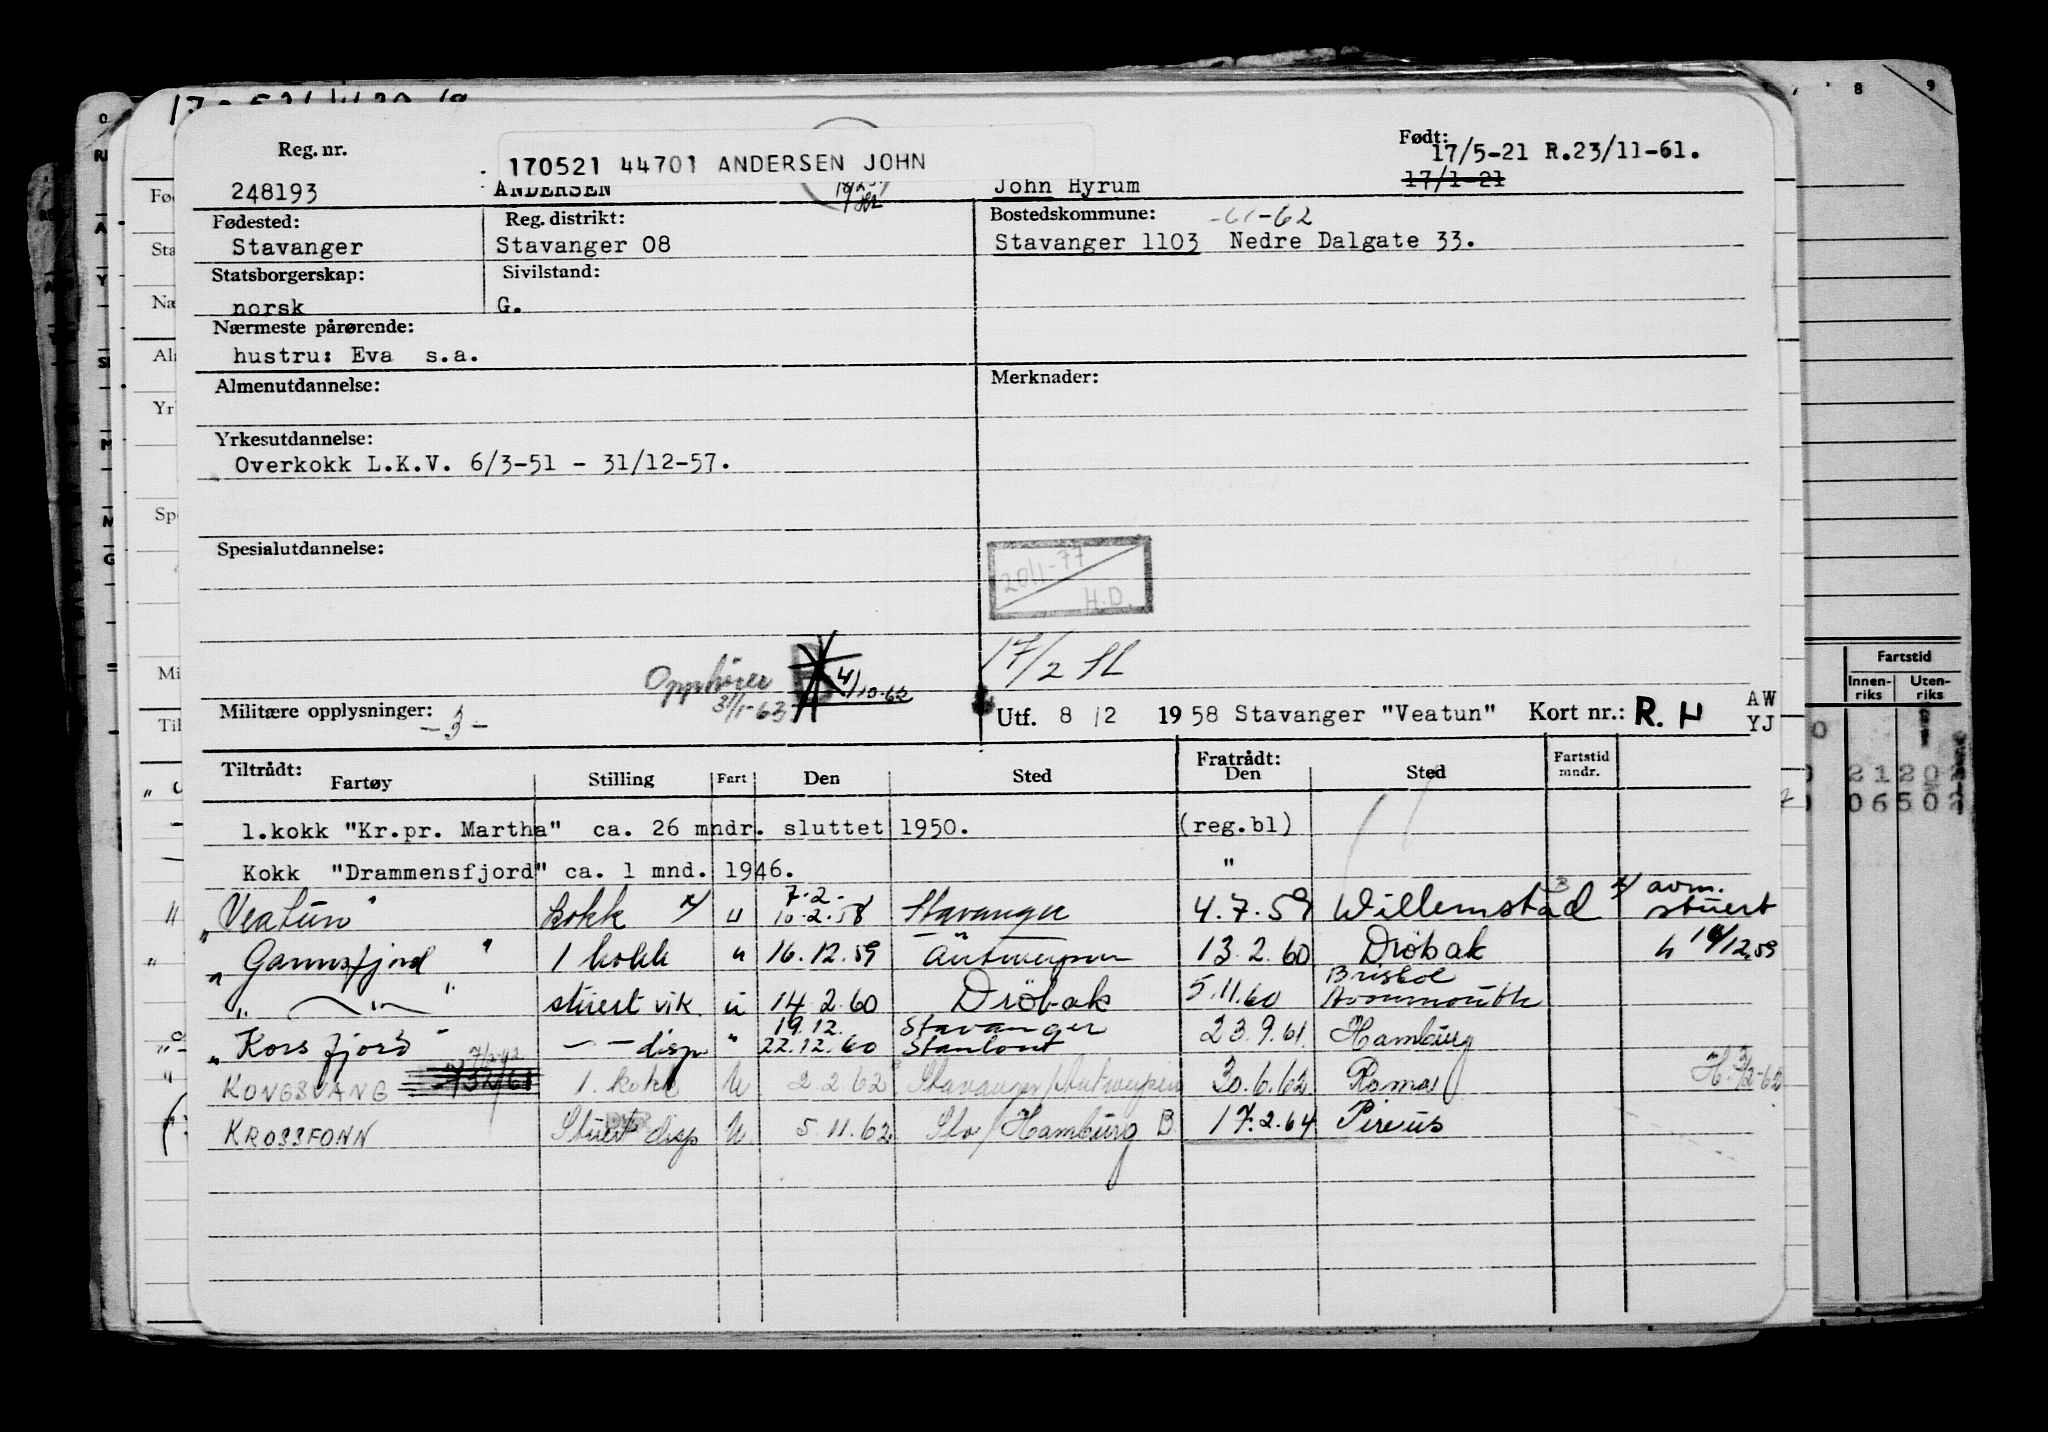 Reg. nr.
170521 44701 ANDERSEN JOHN
Født:
17/5-21 R.23/11-61.
248193
ANDERSEN
John Hyrum
17/1-21
Fødested:
Reg. distrikt:
Bostedskommune:
-61-62
Stavanger
Stavanger 08
Stavanger 1103 Nedre Dalgate 33.
Statsborgerskap:
Sivilstand:
norsk
G.
Nærmeste pårørende:
hustru: Eva s.a.
Almenutdannelse:
Merknader:
Yrkesutdannelse:
Overkokk L.K.V. 6/3-51 - 31/12-57.
Spesialutdannelse:
20/1-77
H.D.
Opphører
31/1-63
4/10-62
17/2
Militære opplysninger:
-3-
Utf. 8/2 1958 Stavanger "Veatun" Kort nr.: R. H
AW
YJ
Tiltrådt:
Fratrådt:
Fartøy Stilling Fart Den Sted Den Sted Fartstid mndr.
1.kokk "Kr.pr. Martha" ca. 26 mndr. sluttet 1950. (reg.bl)
Kokk "Drammensfjord" ca. 1 mnd. 1946. "
"Veatun" kokk x/ u 7-2- 10-2.58 Stavanger 4.7.59 Willemstad x/ avm. stuert
"Gannsfjord" 1 kokk " 16.12.59 Antwerpen 13.2.60 Drøbak h 16/12.59
" — " — " stuert vik. u 14.2.60 Drøbak 5.11.60 Bristol Avonmouth
"Korsfjord" — — disp " 19.12. 22.12.60 Stavanger Stanlow 23.9.61. Hamburg
KONGSVANG 1. kokk U 2.2.62 Stavanger/Antwerpen 30.6.62 Roma
KROSSFONN Stuert disp U 5.11.62 Slv/Hamburg B 17.2.64 Pireus
8
9
Fartstid
Innen-
riks
Uten-
riks
2120
06502